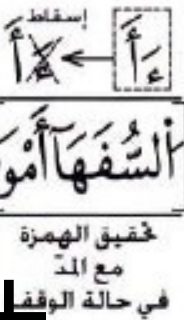 إسقاط
ءَأَ أَ
اَلسُّفَهَآأَمْوَ
تحقيق الهمزة
مع المدّ
في حالة الوقف